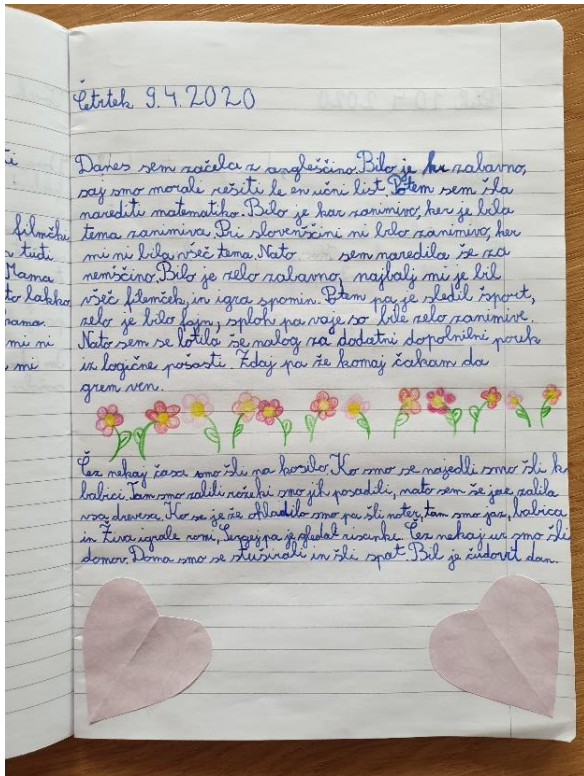 Četrtek 9.4.2020
Danes sem začela z angleščino. Bilo je kr zabavno,
saj smo morale rešiti le en učni list. Potem sem šla
narediti matematiko. Bilo je kar zanimivo, ker je bila
tema zanimiva. Pri slovenščini ni blo zanimivo, ker
mi ni bila všeč tema. Nato sem naredila še za
nemščino. Bilo je zelo zabavno, najbalj mi je bil
všeč filemček, in igra spomin. Potem pa je sledil šport,
zelo je bilo fajn, sploh pa vaje so bile zelo zanimive.
Nato sem se lotila še nalog za dodatni dopolnilni pouk
iz logične pošasti. Zdaj pa že komaj čakam da
grem ven.
Čez nekaj časa smo šli na kosilo. Ko smo se najedli smo šli k
babici. Tam smo zalili rožeki smo jih posadili, nato sem še jaz zalila
vsa drevesa. Ko se je že ohladilo smo pa šli noter, tam smo jaz, babica
in Živa igrale romi, Sergej pa je gledal risanke. Čez nekaj ur smo šli
domov. Doma smo se stuširali in šli spat. Bil je čudovit dan.
filmčka
tudi
Mama
to lahko
hama.
mi ni
mi